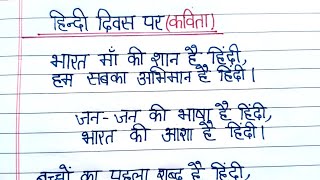 हिन्दी दिवस पर (कविता)
भारत माँ की शान है हिंदी,
हम सबका अभिमान है हिंदी।
जन-जन की भाषा है हिंदी,
भारत की आशा है हिंदी।
बच्चों का पहला शब्द है हिंदी,